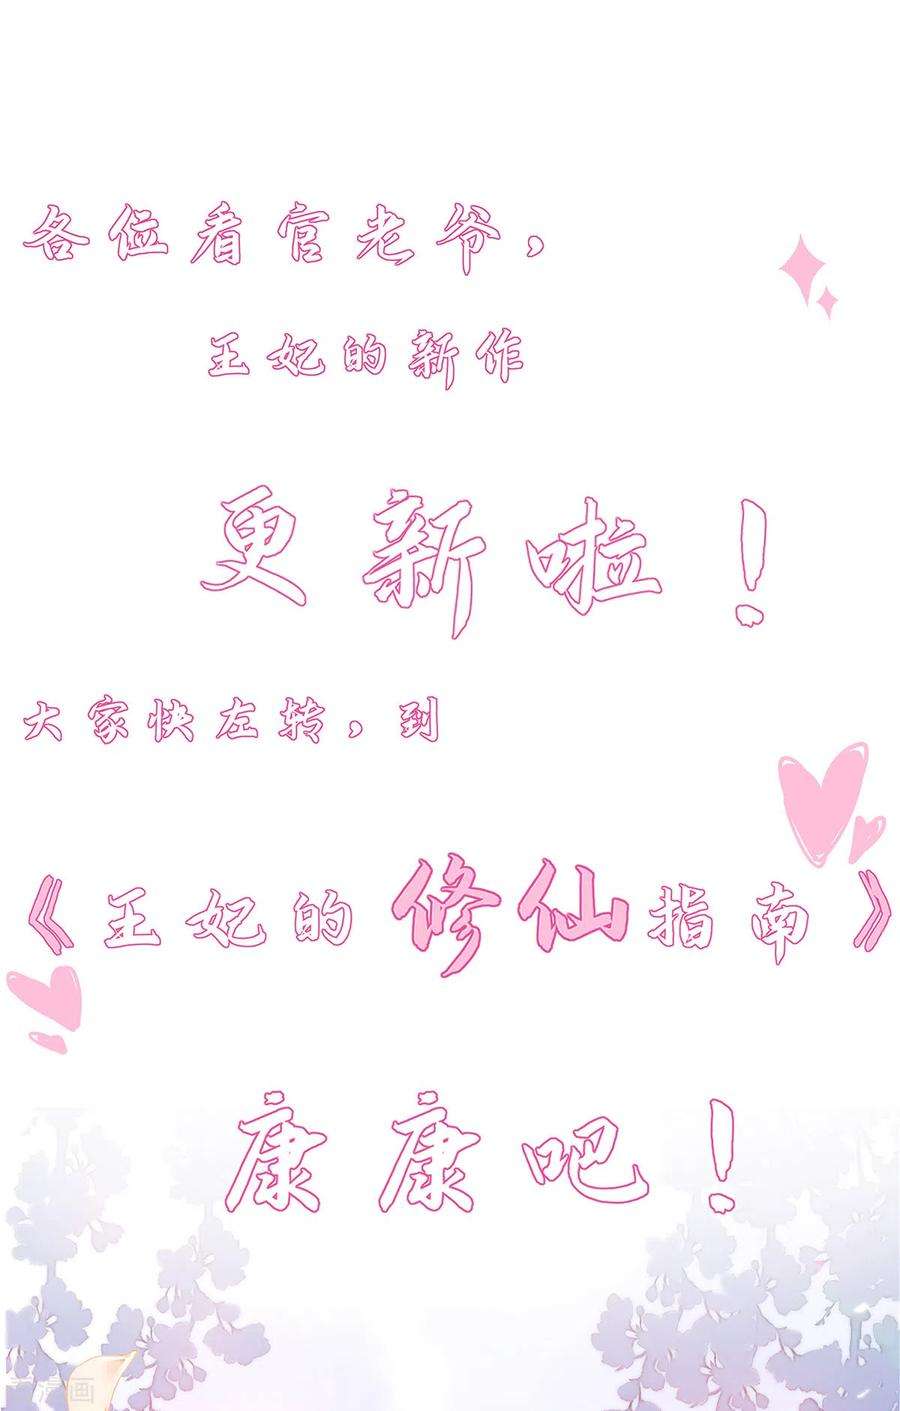 各位看官老爷，
王妃的新作
更新啦！
大家快左转，到
《王妃的修仙指南》
康康吧！
漫画